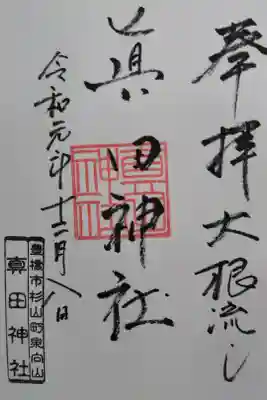 奉拝 大根流し
眞田神社
令和元年十二月八日
眞田神社
豊橋市杉山町東向山
真田神社